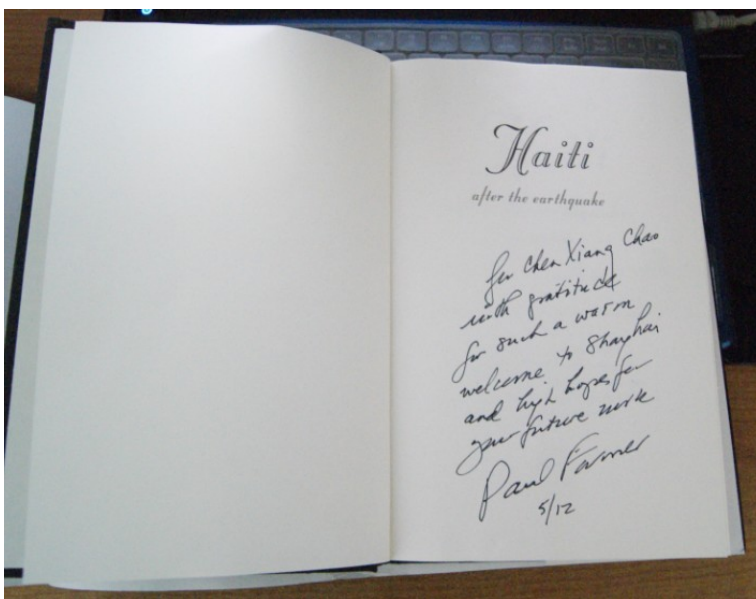 Haiti
after the earthquake
for Chen Xiang Chao
with gratitude
for such a warm
welcome to Shanghai
and high hopes for
your future work
Paul Farmer
5/12